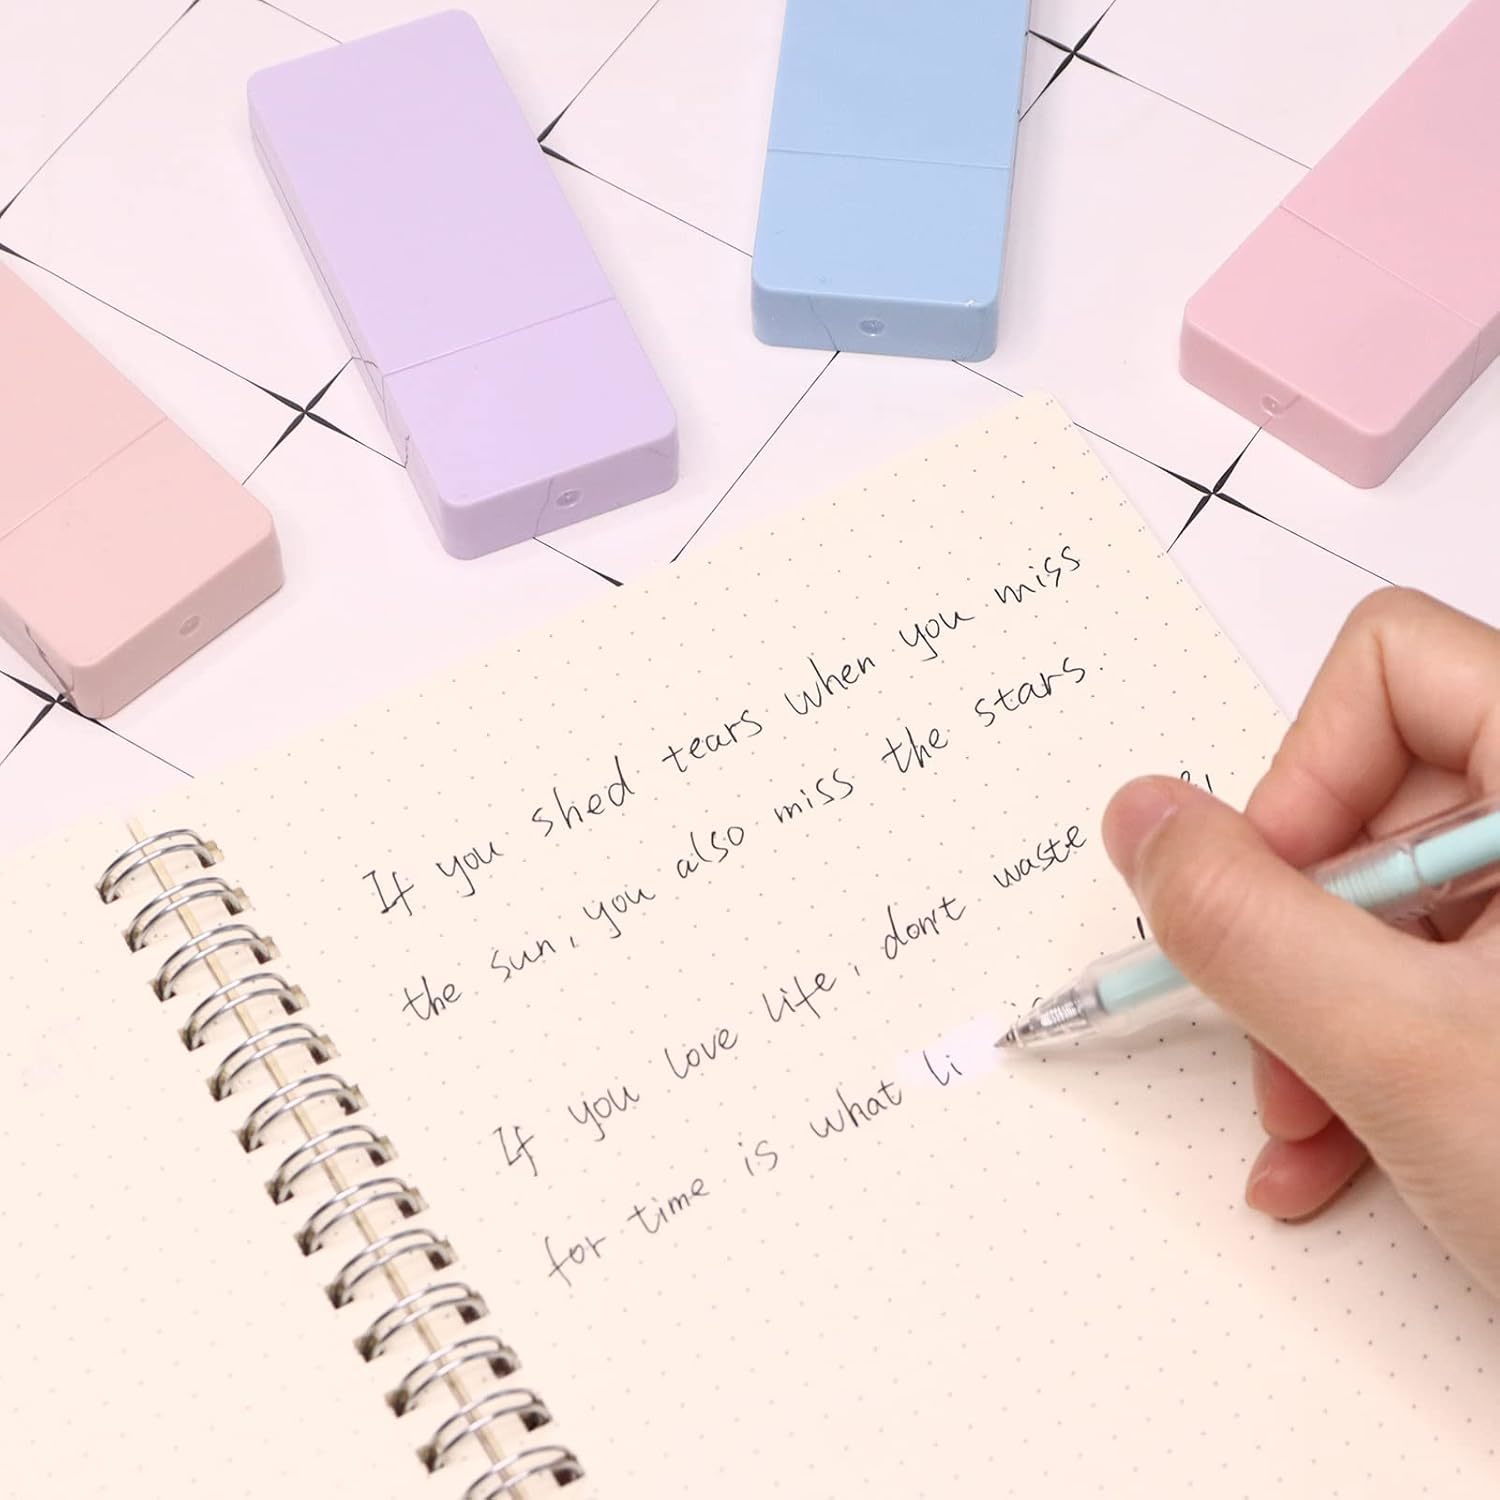 If you shed tears when you miss
the sun, you also miss the stars.
If you love life, don't waste
for time is what li